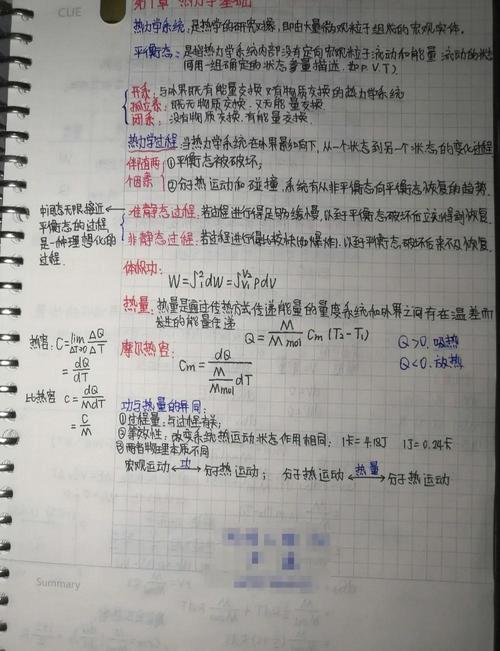 CUE
第1章 热力学基础
热力学系统：是热学的研究对象，即由大量微观粒子组成的宏观实体。
平衡态：是指热力学系统内部没有定向宏观粒子流动和能量流动的状态
可用一组确定的状态参量描述. 如(P.V.T)
开系：与外界既有能量交换又有物质交换的热力学系统
孤立系：既无物质交换. 又无能量交换
闭系：没有物质交换. 有能量交换.
热力学过程：当热力学系统在外界影响下，从一个状态到另一个状态的变化过程
伴随两个因素
①平衡态被破坏；
②分子热运动和碰撞，系统有从非平衡态向平衡态恢复的趋势.
中间态无限接近平衡态的过程是一种理想化的过程.
准静态过程：若过程进行得足够缓慢，以至于平衡态破坏后立刻得到恢复
非静态过程：若过程进行得比较快(如爆炸)，以至于平衡态破坏后来不及恢复.
体积功：
W=∫₁²dW=∫ᵥ₁ᵛ²pdV
热量：热量是通过传热方式传递能量的量度，系统和外界之间存在温差而
发生的能量传递
Q = M/Mmol Cm (T₂-T₁)
Q>0. 吸热
Q<0. 放热
热容：C=lim ΔT→0 ΔQ/ΔT
= dQ/dT
比热容 c= dQ/MdT
= C/M
摩尔热容：
Cm = dQ / (M/Mmol dT)
功与热量的异同：
①过程量：与过程有关；
②等效性：改变系统热运动状态作用相同；1卡=4.18J 1J=0.24卡
③两者物理本质不同
宏观运动 ←功→ 分子热运动； 分子热运动 ←热量→ 分子热运动
Summary